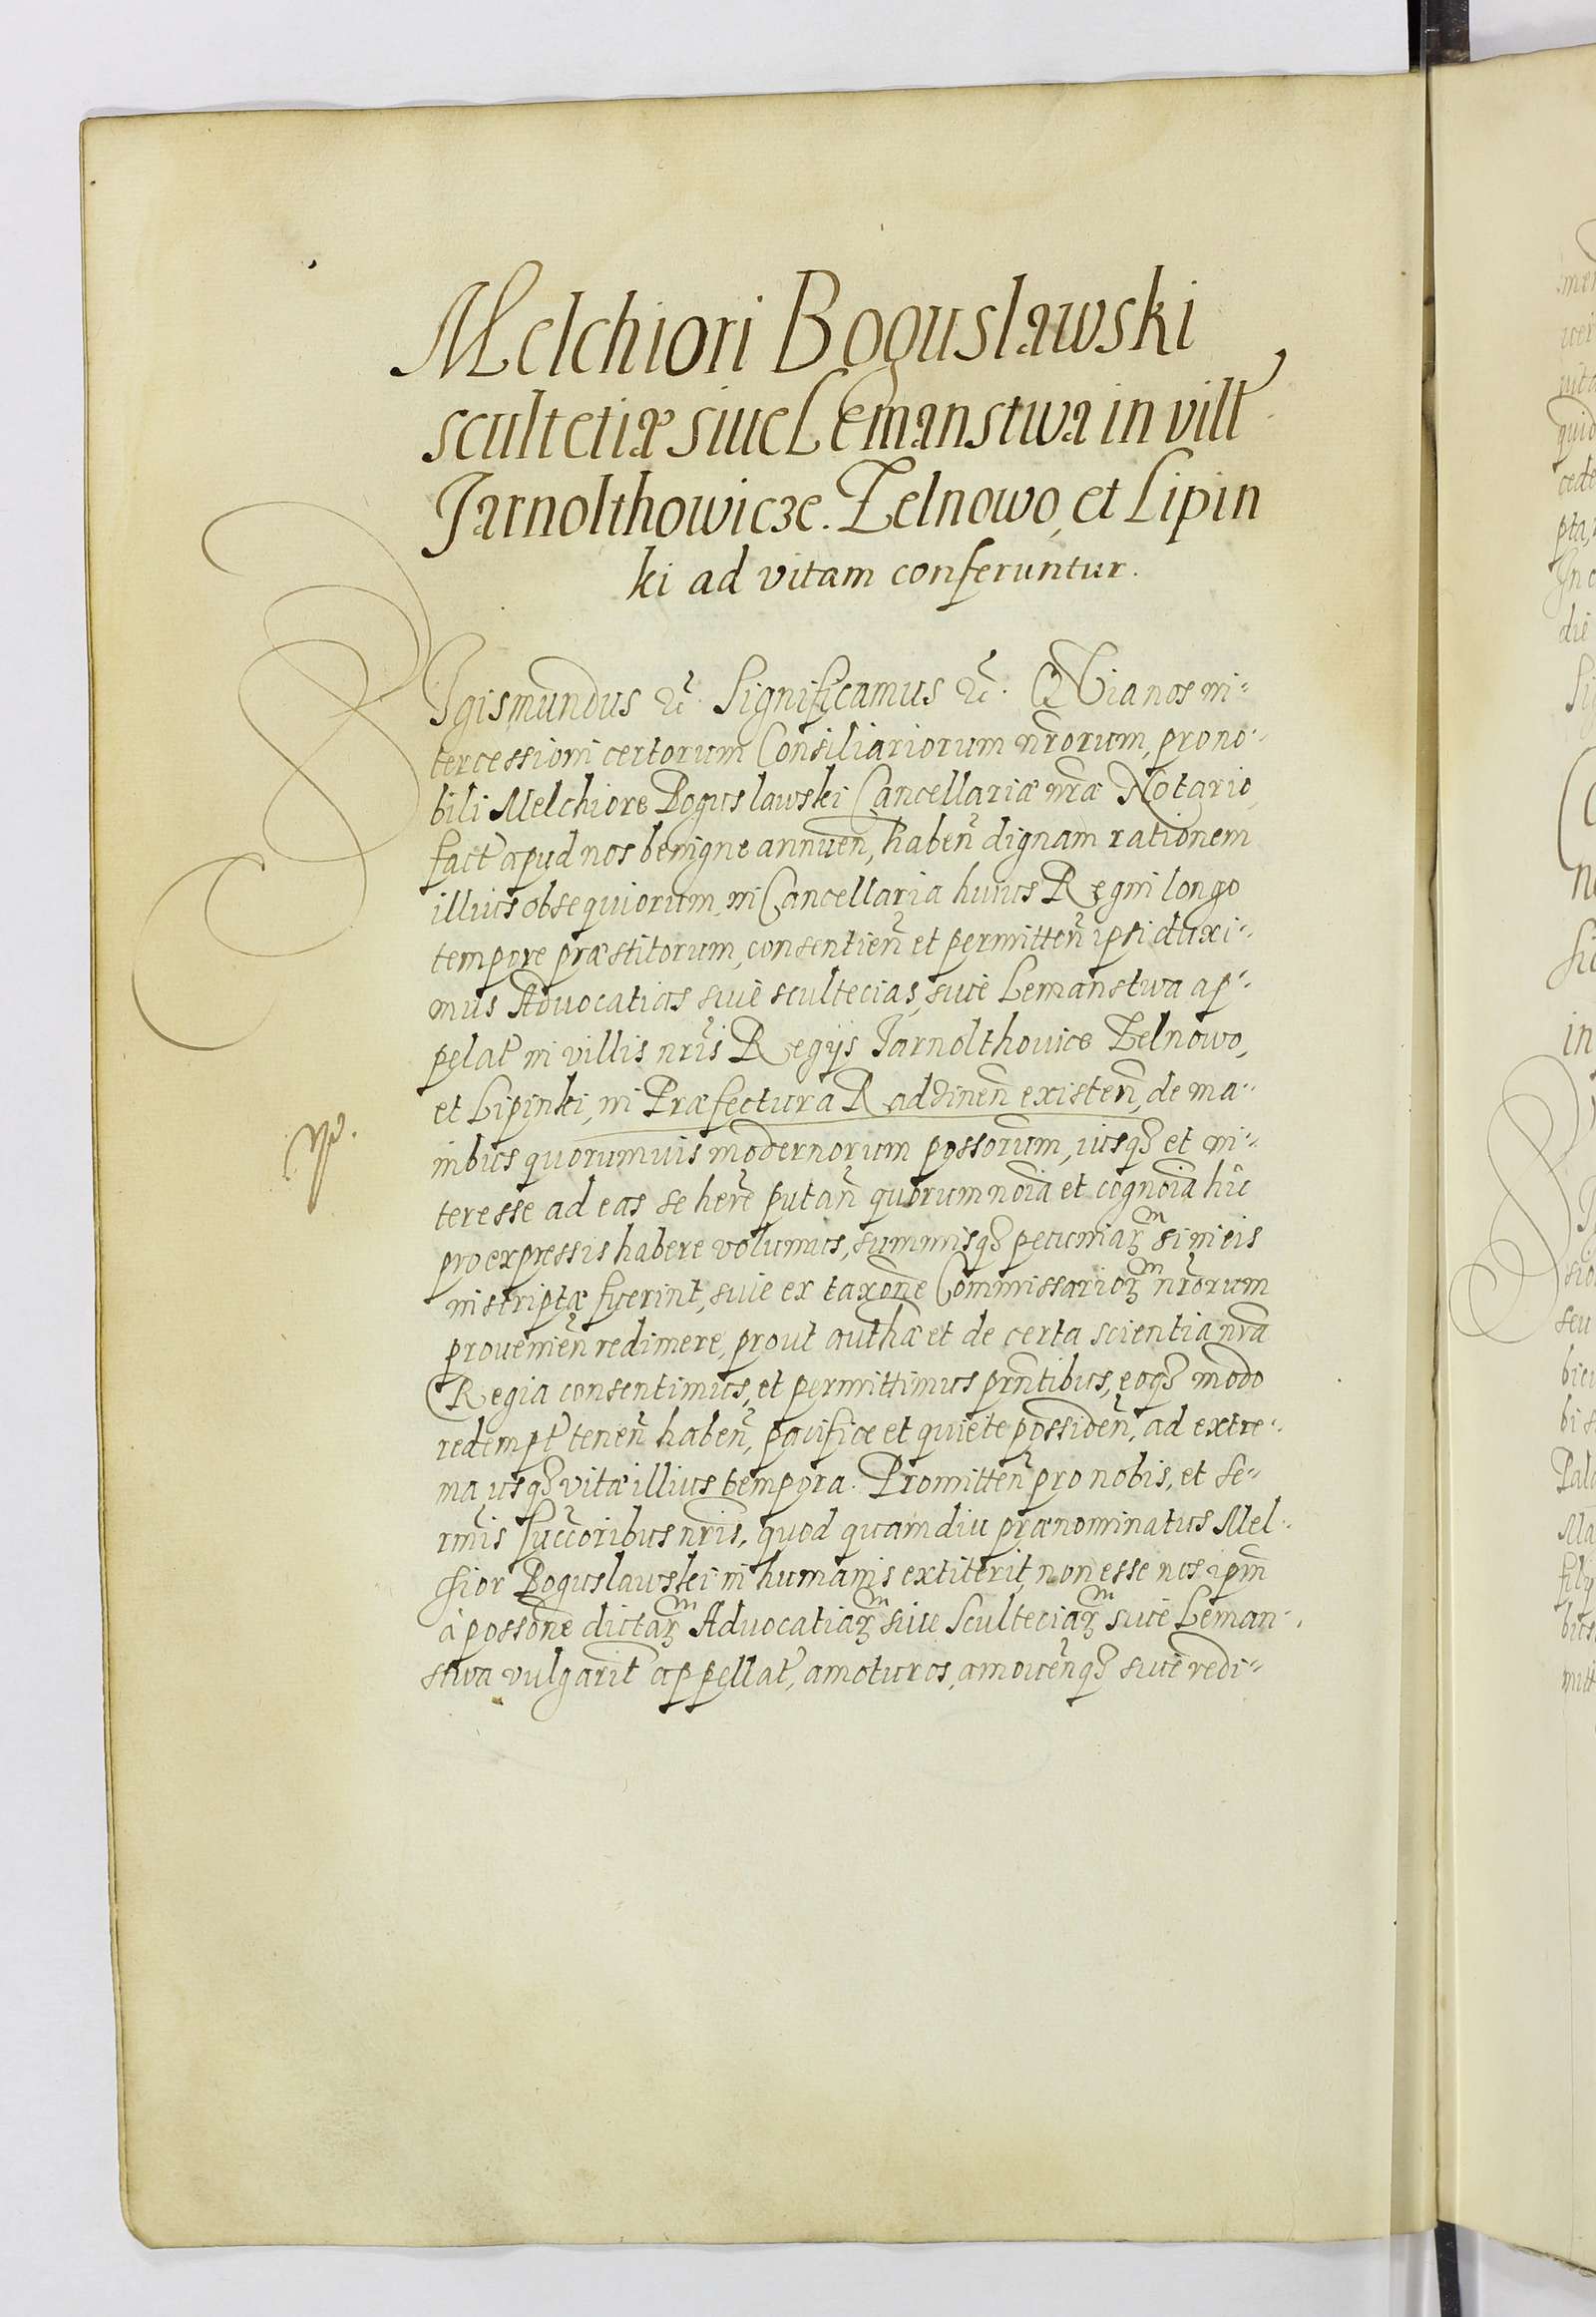 Melchiori Boguslawski
scultetiæ siue Lemanstwa in vill
Jarnolthowicze. Zelnowo, et Lipin
ki ad vitam conferuntur.
Sigismundus &c. Significamus &c. Quia nos in-
tercessioni certorum Consiliariorum nr̃orum, pro no-
bili Melchiore Boguslawski Cancellariæ nr̃æ Notario
fact apud nos benigne annuen̄, haben̄ dignam rationem
illius obsequiorum, in Cancellaria huius Regni longo
tempore præstitorum, consentien̄ et permitten̄ ipsi duxi-
mus Aduocatias siue scultecias, siue Lemanstwa ap-
pelat in villis nr̃is Regijs Jarnolthouice Zelnowo,
et Lipinki, in Præfectura Raddinen̄ existen̄, de ma-
nibus quorumuis modernorum poss̄orum, iusq3 et in-
teresse ad eas se her̄e putan̄ quorum no͞ia et cogno͞ia hi͞c
pro expressis habere volumus, summisq3 pecuniar̄ si in eis
inscriptæ fuerint, siue ex taxo͞ne Commissarior̄ nr̃orum
prouenien̄ redimere, prout auth͞æ et de certa scientia nr̃a
Regia consentimus, et permittimus pr̃ntibus, eoq3 modo
redempt tenen̄ haben̄, pacifice et quiete possiden̄, ad extre-
ma usq3 vitæ illius tempora. Promitten̄ pro nobis, et Se-
rm̄is Succ̄oribus nr̃is, quod quamdiu prænominatus Mel-
chior Boguslawski in humanis extiterit, non esse nos ipm̄
à posso͞ne dictar̄ Aduocatiar̄ siue Sculteciar̄ siue Leman-
stwa vulgarit appellat, amoturos, amouen̄q3 siue redi-